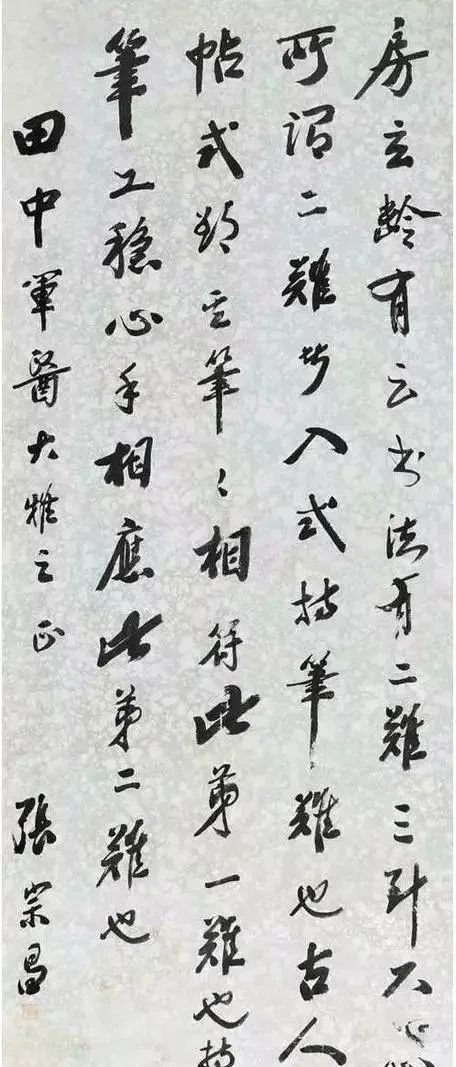 房玄齡有云書法有二難三不
所謂二難入式持筆難也古人
帖式筆々相符此第一難也持
筆工穩心手相應此第二難也
田中軍醫大雅之正 張宗昌